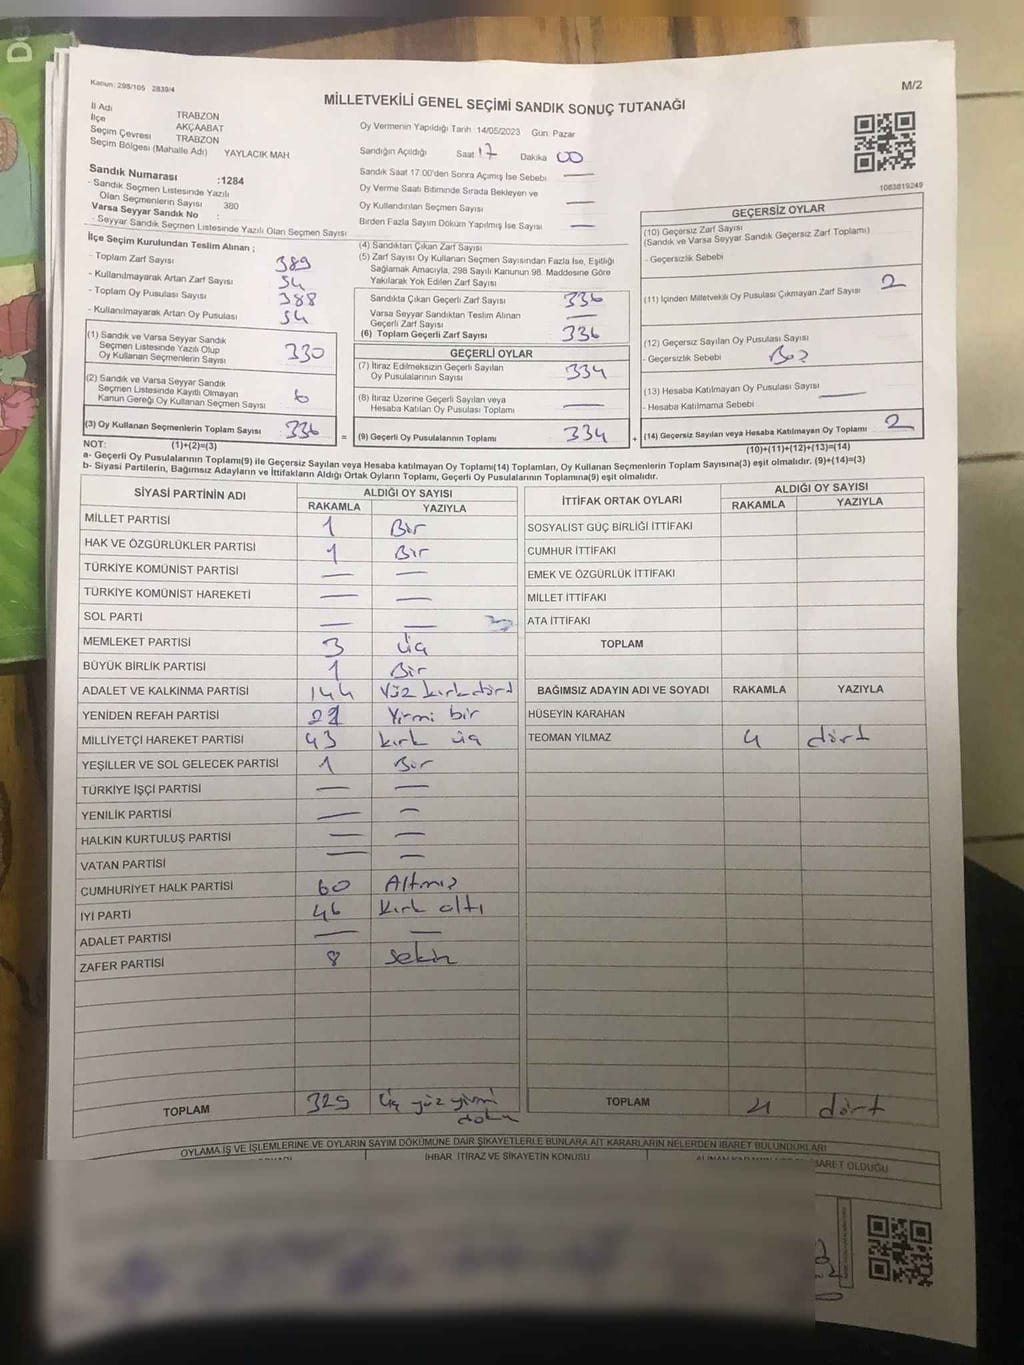 Kanun: 298/105 2839/4
M/2
MİLLETVEKİLİ GENEL SEÇİMİ SANDIK SONUÇ TUTANAĞI
İl Adı TRABZON
İlçe AKÇAABAT
Seçim Çevresi TRABZON
Seçim Bölgesi (Mahalle Adı) YAYLACIK MAH
Sandık Numarası :1284
- Sandık Seçmen Listesinde Yazılı
Olan Seçmenlerin Sayısı 380
Varsa Seyyar Sandık No :
- Seyyar Sandık Seçmen Listesinde Yazılı Olan Seçmen Sayısı
Oy Vermenin Yapıldığı Tarih 14/05/2023 Gün Pazar
Sandığın Açıldığı Saat 17 Dakika 00
Sandık Saat 17.00'den Sonra Açımış İse Sebebi —
Oy Verme Saati Bitiminde Sırada Bekleyen ve
Oy Kullandırılan Seçmen Sayısı —
Birden Fazla Sayım Döküm Yapılmış İse Sayısı —
1083819249
İlçe Seçim Kurulundan Teslim Alınan ;
- Toplam Zarf Sayısı 389
- Kullanılmayarak Artan Zarf Sayısı 54
- Toplam Oy Pusulası Sayısı 388
- Kullanılmayarak Artan Oy Pusulası 54
(1) Sandık ve Varsa Seyyar Sandık
Seçmen Listesinde Yazılı Olup
Oy Kullanan Seçmenlerin Sayısı 330
(2) Sandık ve Varsa Seyyar Sandık
Seçmen Listesinde Kayıtlı Olmayan
Kanun Gereği Oy Kullanan Seçmen Sayısı 6
(3) Oy Kullanan Seçmenlerin Toplam Sayısı 336
(4) Sandıktan Çıkan Zarf Sayısı
(5) Zarf Sayısı Oy Kullanan Seçmen Sayısından Fazla İse, Eşitliği
Sağlamak Amacıyla, 298 Sayılı Kanunun 98. Maddesine Göre
Yakılarak Yok Edilen Zarf Sayısı
Sandıkta Çıkan Geçerli Zarf Sayısı 336
Varsa Seyyar Sandıktan Teslim Alınan
Geçerli Zarf Sayısı —
(6) Toplam Geçerli Zarf Sayısı 336
GEÇERLİ OYLAR
(7) İtiraz Edilmeksizin Geçerli Sayılan
Oy Pusulalarının Sayısı 334
(8) İtiraz Üzerine Geçerli Sayılan veya
Hesaba Katılan Oy Pusulası Toplamı —
= (9) Geçerli Oy Pusulalarının Toplamı 334 +
GEÇERSİZ OYLAR
(10) Geçersiz Zarf Sayısı
(Sandık ve Varsa Seyyar Sandık Geçersiz Zarf Toplamı)
- Geçersizlik Sebebi
(11) İçinden Milletvekili Oy Pusulası Çıkmayan Zarf Sayısı 2
(12) Geçersiz Sayılan Oy Pusulası Sayısı
- Geçersizlik Sebebi Boş
(13) Hesaba Katılmayan Oy Pusulası Sayısı —
- Hesaba Katılmama Sebebi
(14) Geçersiz Sayılan veya Hesaba Katılmayan Oy Toplamı 2
NOT: (1)+(2)=(3)
(10)+(11)+(12)+(13)=(14)
a- Geçerli Oy Pusulalarının Toplamı(9) ile Geçersiz Sayılan veya Hesaba katılmayan Oy Toplamı(14) Toplamları, Oy Kullanan Seçmenlerin Toplam Sayısına(3) eşit olmalıdır. (9)+(14)=(3)
b- Siyasi Partilerin, Bağımsız Adayların ve İttifakların Aldığı Ortak Oyların Toplamı, Geçerli Oy Pusulalarının Toplamına(9) eşit olmalıdır.
SİYASİ PARTİNİN ADI ALDIĞI OY SAYISI
RAKAMLA YAZIYLA
MİLLET PARTİSİ 1 Bir
HAK VE ÖZGÜRLÜKLER PARTİSİ 1 Bir
TÜRKİYE KOMÜNİST PARTİSİ — —
TÜRKİYE KOMÜNİST HAREKETİ — —
SOL PARTİ — —
MEMLEKET PARTİSİ 3 üç
BÜYÜK BİRLİK PARTİSİ 1 Bir
ADALET VE KALKINMA PARTİSİ 144 Yüz kırk dört
YENİDEN REFAH PARTİSİ 21 Yirmi bir
MİLLİYETÇİ HAREKET PARTİSİ 43 kırk üç
YEŞİLLER VE SOL GELECEK PARTİSİ 1 Bir
TÜRKİYE İŞÇİ PARTİSİ — —
YENİLİK PARTİSİ — —
HALKIN KURTULUŞ PARTİSİ — —
VATAN PARTİSİ — —
CUMHURİYET HALK PARTİSİ 60 Altmış
İYİ PARTİ 46 Kırk altı
ADALET PARTİSİ — —
ZAFER PARTİSİ 8 sekiz
TOPLAM 329 üç yüz yirmi
doku
İTTİFAK ORTAK OYLARI ALDIĞI OY SAYISI
RAKAMLA YAZIYLA
SOSYALİST GÜÇ BİRLİĞİ İTTİFAKI
CUMHUR İTTİFAKI
EMEK VE ÖZGÜRLÜK İTTİFAKI
MİLLET İTTİFAKI
ATA İTTİFAKI
TOPLAM
BAĞIMSIZ ADAYIN ADI VE SOYADI RAKAMLA YAZIYLA
HÜSEYİN KARAHAN
TEOMAN YILMAZ 4 dört
TOPLAM 4 dört
OYLAMA İŞ VE İŞLEMLERİNE VE OYLARIN SAYIM DÖKÜMÜNE DAİR ŞİKAYETLERLE BUNLARA AİT KARARLARIN NELERDEN İBARET BULUNDUKLARI
İHBAR, İTİRAZ VE ŞİKAYETİN KONUSU